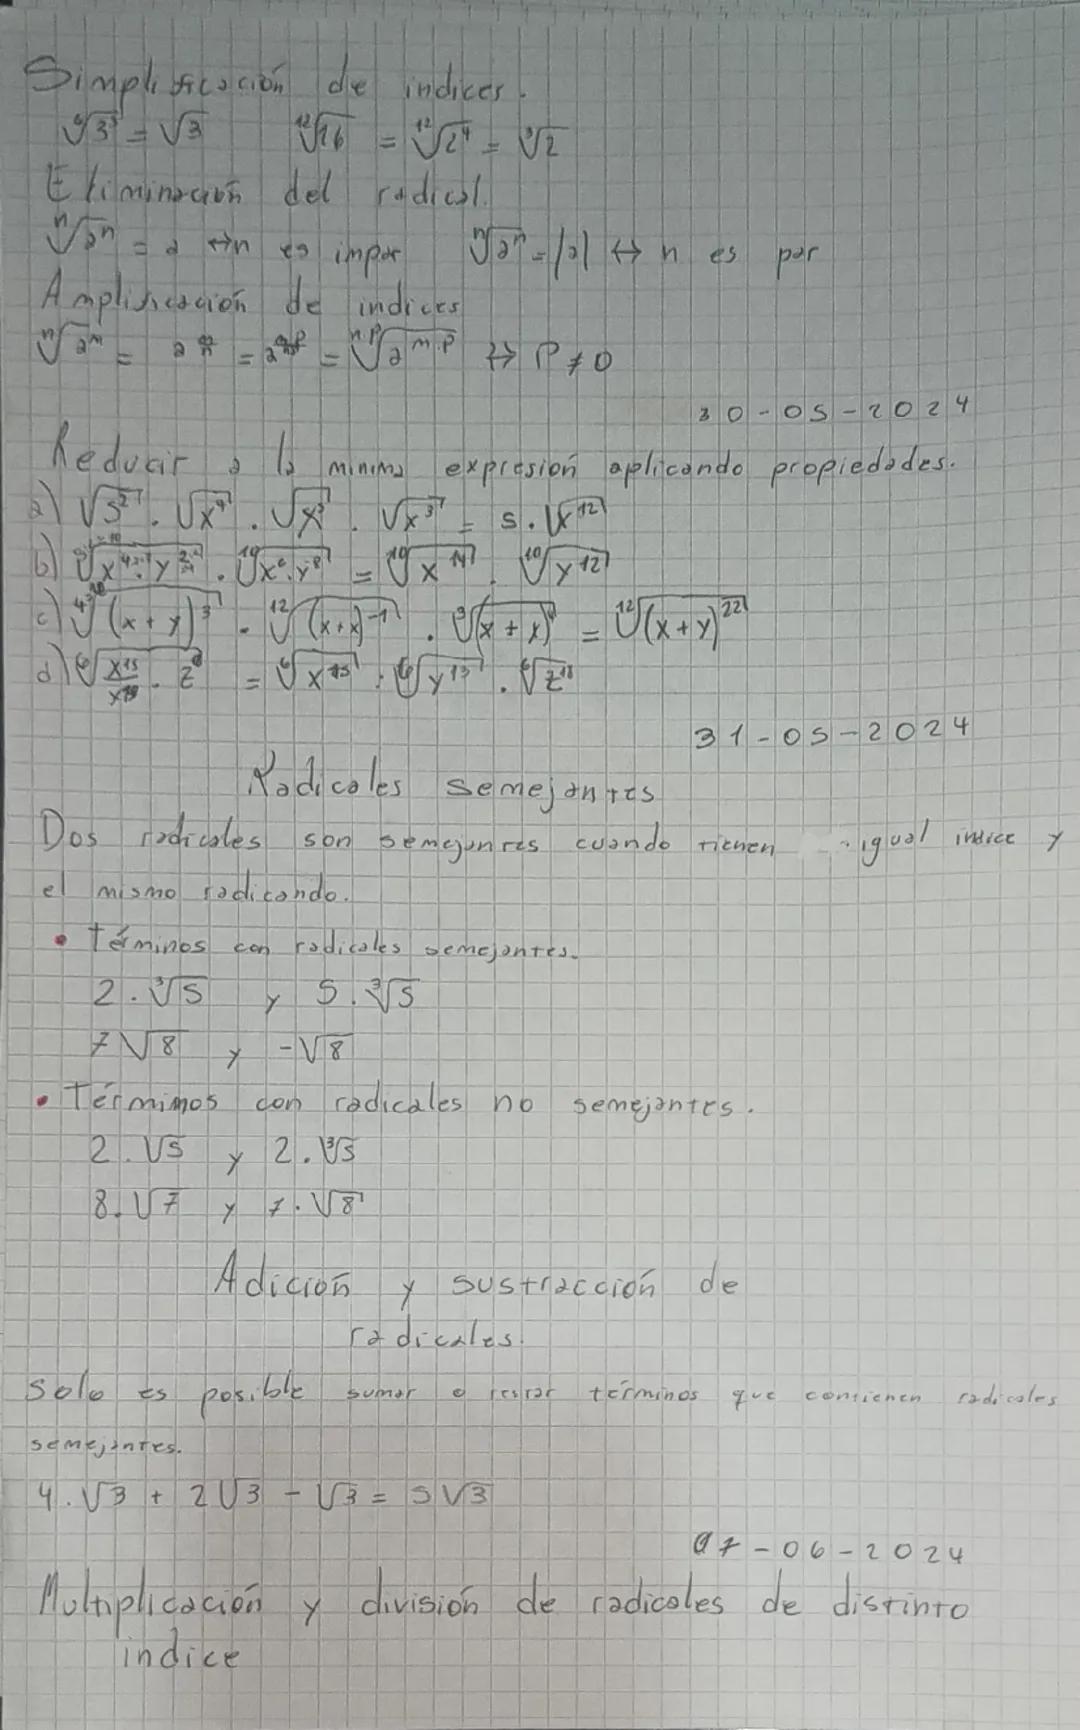 Simplificación de indices.
⁶√3³ = √3 ¹²√16 = ¹²√2⁴ = ³√2
Eliminación del radical.
ⁿ√aⁿ = a ↔ n es impar ⁿ√aⁿ = |a| ↔ n es par
Amplificación de indices
ⁿ√aᵐ = a^(m/n) = = ⁿ·ᵖ√a^(m·p) ↔ P ≠ 0
30-05-2024
Reducir a la minima expresión aplicando propiedades.
a) √5² . √x⁴ . . √x³ = 5 . √x¹²
b) . = ¹⁰√x¹⁴ . ¹⁰√y¹²
c) (x+y)³ . ¹²√(x+x)⁻¹ . = ¹²√(x+y)²²
d) =
31-05-2024
Radicales semejantes
Dos radicales son semejantes cuando tienen igual indice y
el mismo radicando.
• Términos con radicales semejantes.
2 . ³√5 y 5 . ³√5
7√8 y -√8
• Términos con radicales no semejantes.
2 . √5 y 2 . ³√5
8 . √7 y 7 . √8
Adición y sustracción de
radicales.
Solo es posible sumar o restar términos que contienen radicales
semejantes.
4 . √3 + 2√3 - √3 = 5√3
07-06-2024
Multiplicación y división de radicales de distinto
indice